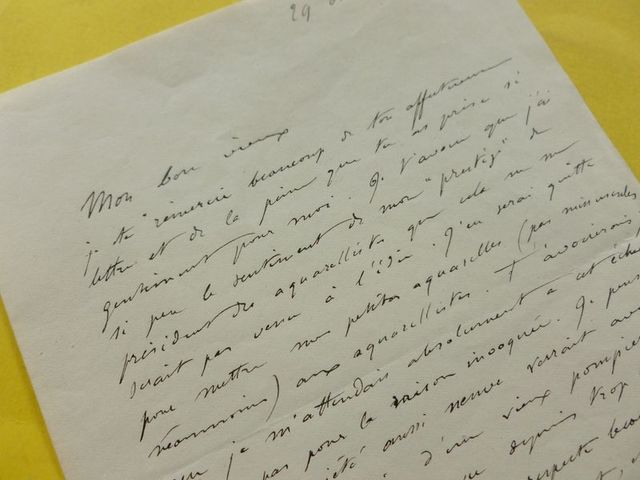 29
Mon bon vieux
je te remercie beaucoup de ton affectueuse
lettre et de la peine que tu as prise si
gentiment pour moi. Je t'avoue que j'ai
si peu le sentiment de mon "prestige" de
président des aquarellistes que cela ne me
serait pas venu à l'idée. J'en serai quitte
pour mettre mes petites aquarelles (pas minuscules
néanmoins) aux aquarellistes. T'avouerai
que je m'attendais absolument à cet échec
pas pour la raison invoquée. Je pens
été aussi neuve verrait av
d'un vieux pompier
depuis trop
respecte beau